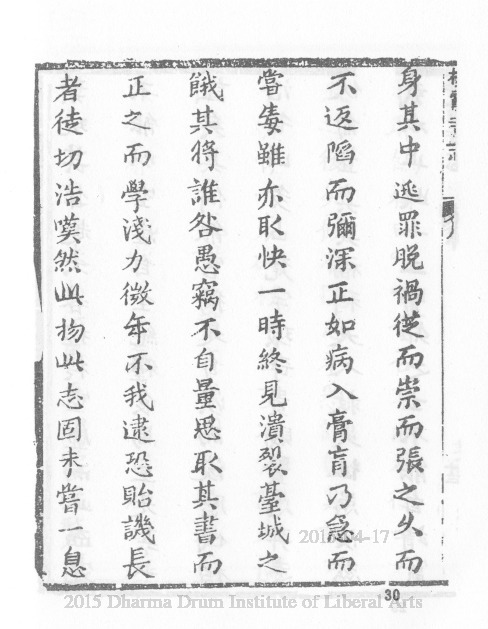 身其中逃罪脫禍從而崇而張之久而
不返陷而彌深正如病入膏肓乃急而
嘗毒雖亦取快一時終見潰裂臺城之
餓其將誰咎愚竊不自量思取其書而
正之而學淺力微年不我逮恐貽譏長
者徒切浩嘆然此物此志固未嘗一息
30
2015 Dharma Drum Institute of Liberal Arts